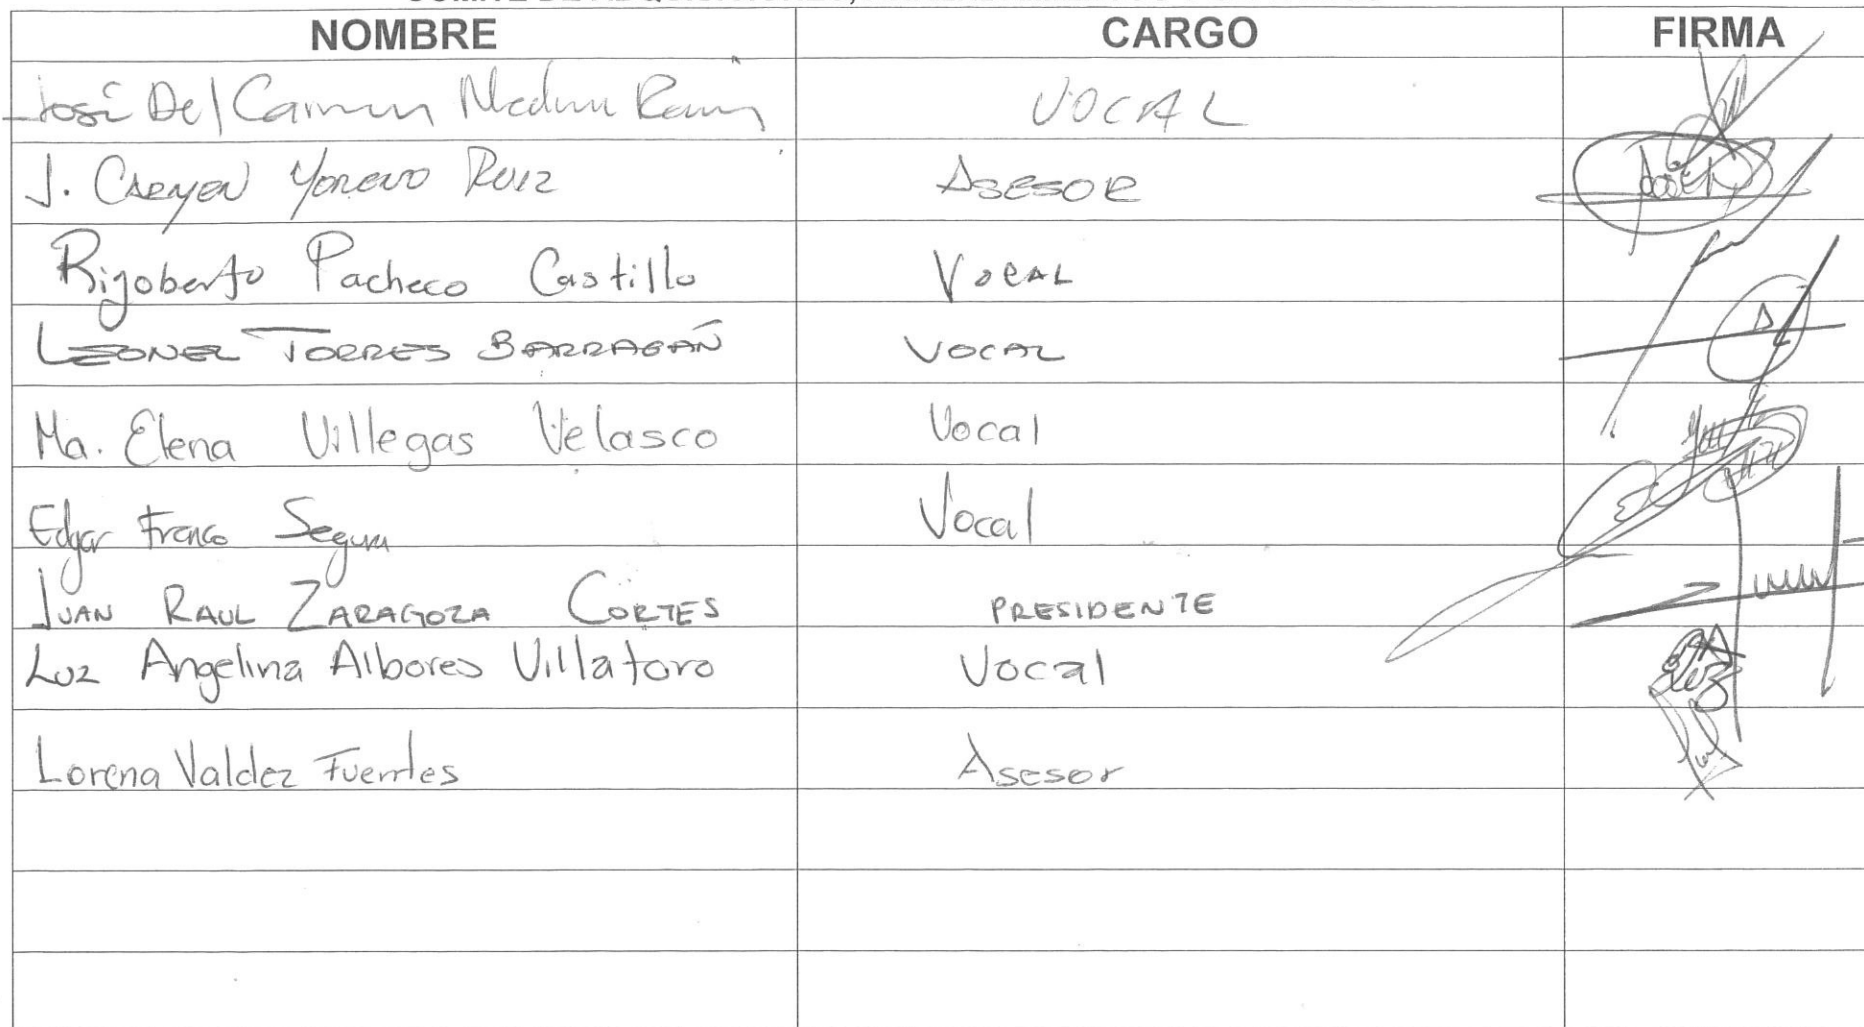 NOMBRE CARGO FIRMA
José Del Carmen Medina VOCAL
J. CARMEN MORENO RUIZ ASESOR
Rigoberto Pacheco Castillo VOCAL
LEONEL TORRES BARRAGÁN VOCAL
Ma. Elena Villegas Velasco Vocal
Edgar Franco Segura Vocal
JUAN RAUL ZARAGOZA CORTES PRESIDENTE
Luz Angelina Albores Villatoro Vocal
Lorena Valdez Fuentes Asesor